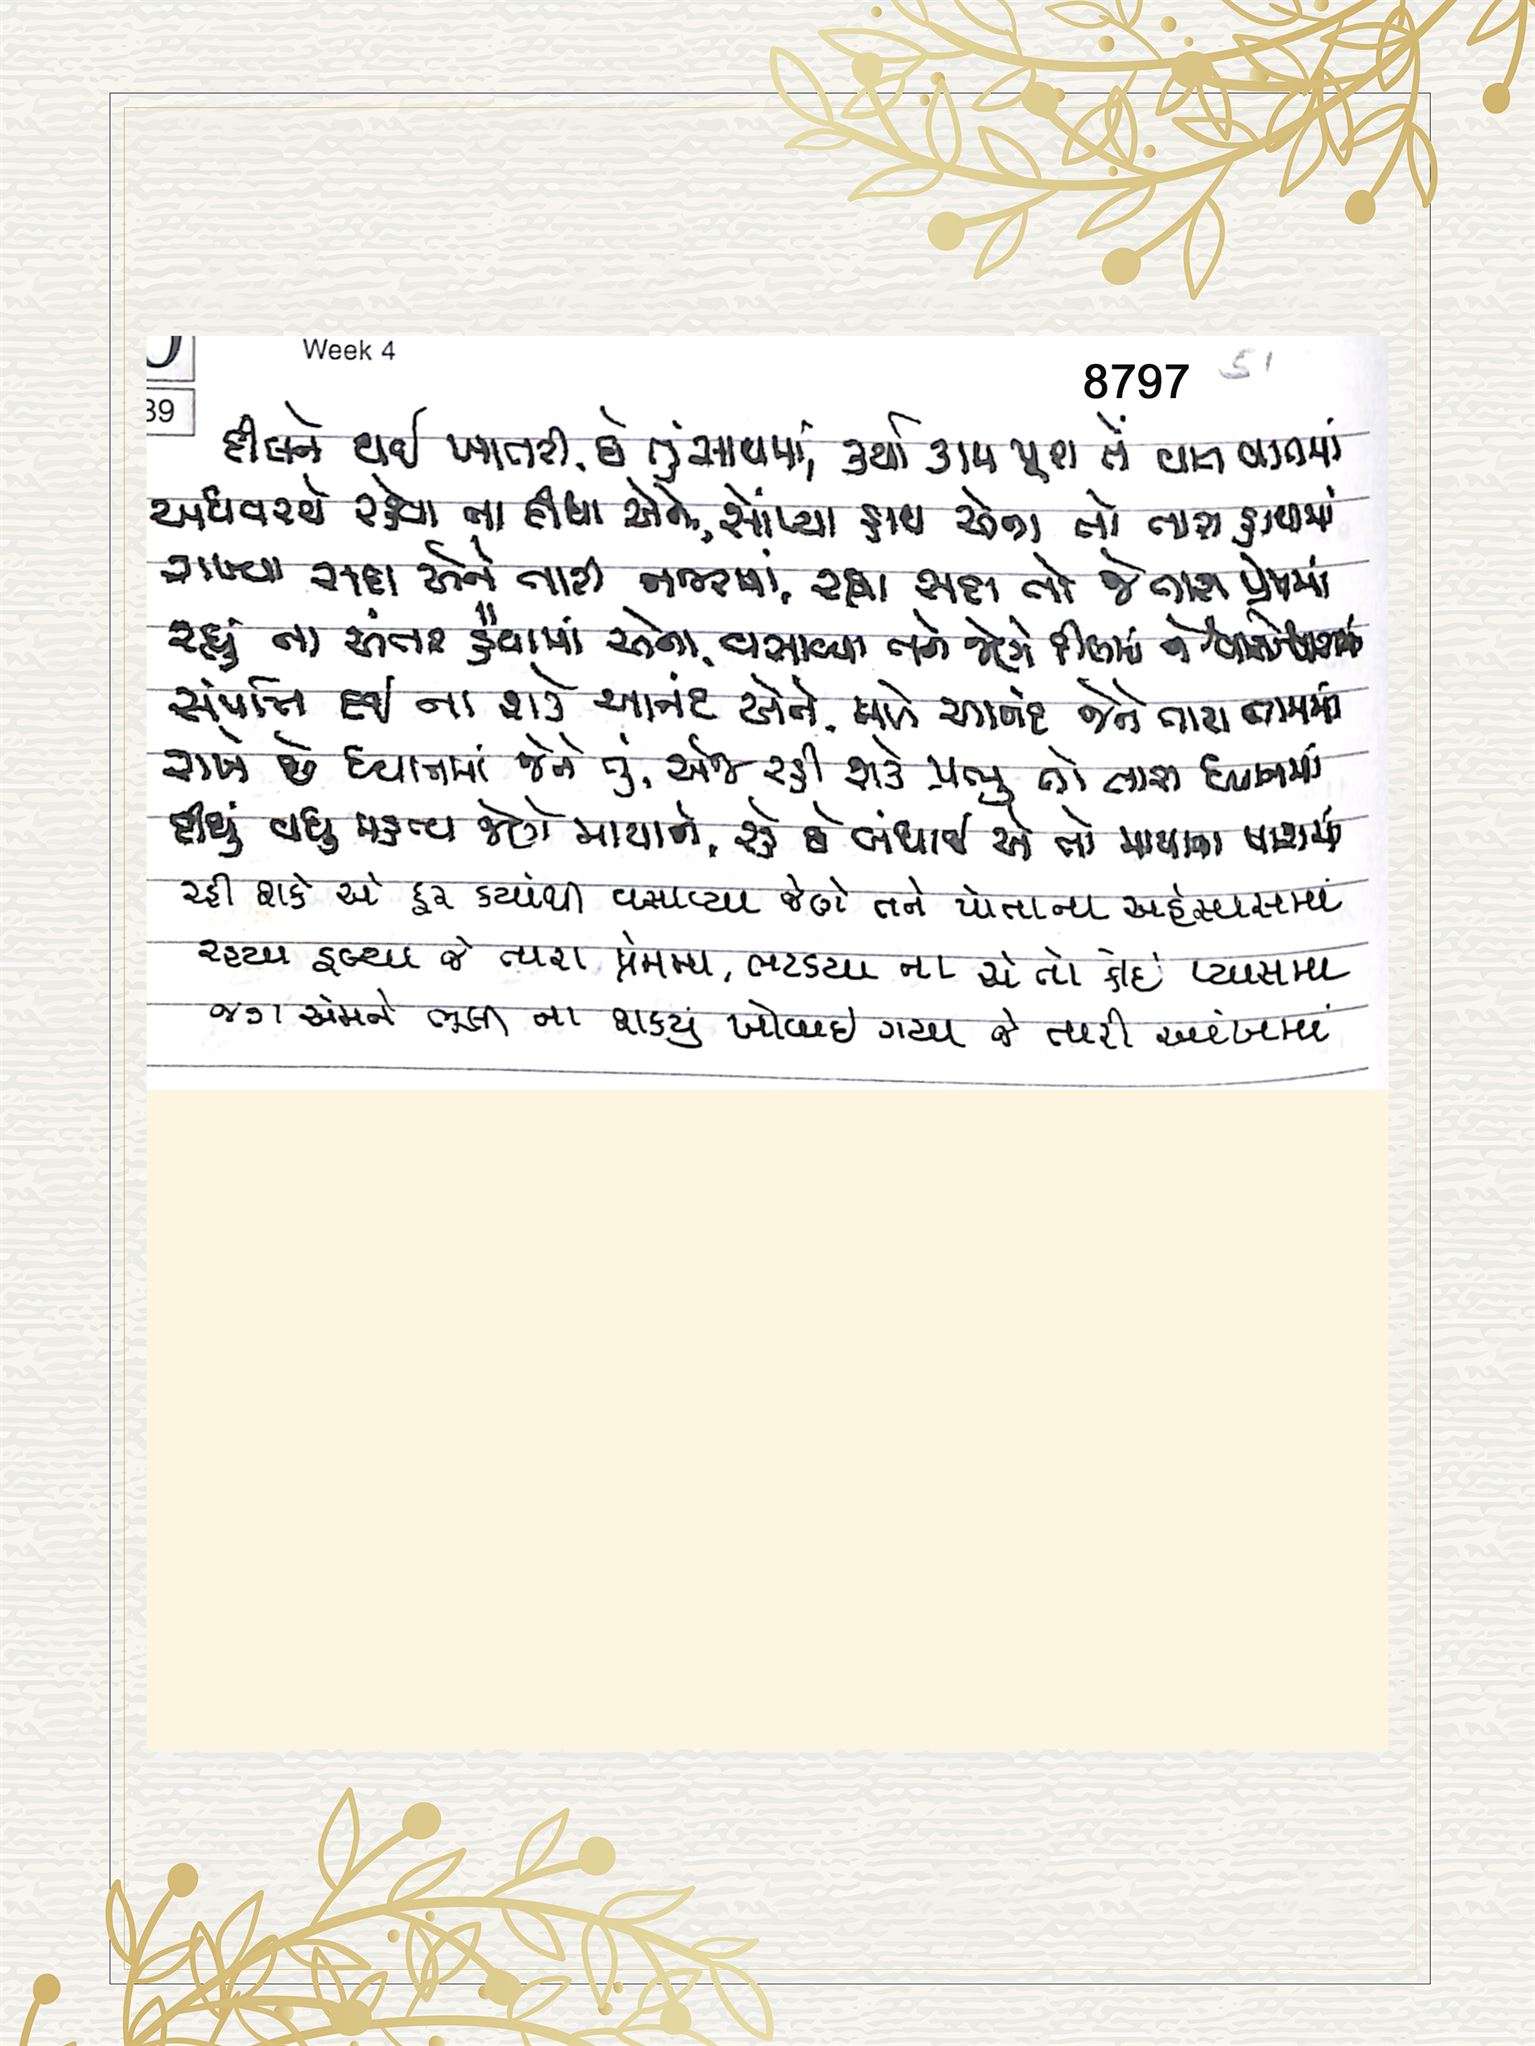 Week 4
8797 51
39
દીલને થઈ ખાતરી, છે તું સાથમાં, કર્યા કામ પૂરા તેં વાત વાતમાં
અધવચ્ચે રહેવા ના દીધા એને, સોંપ્યા હાથ એના તો તારા હાથમાં
રાખ્યા સદા એને તારી નજરમાં, રહ્યા સદા તો જે તારા પ્રેમમાં
રહ્યું ના અંતર હૈયામાં એના, વસાવ્યા તને જેણે દીલમાં ને
સંપત્તિ દઈ ના શકે આનંદ એને, મળે આનંદ જેને તારા નામમાં
રાખે છે ધ્યાનમાં જેને તું, એજ રહી શકે પ્રભુ તો તારા ધ્યાનમાં
દીધું વધુ મહત્વ જેણે માયાને, રહે છે બંધાઈ એ તો માયાના પાશમાં
રહી શકે એ દૂર કયાંથી વસાવ્યા જેણે તને પોતાના અહેસાસમાં
રહ્યા ડૂબ્યા જે તારા પ્રેમમા, ભટકયા ના એ તો કોઇ પ્યાસમા
જગ એમને ભૂલી ના શકયું ખોવાઇ ગયા જે તારી આંખમાં